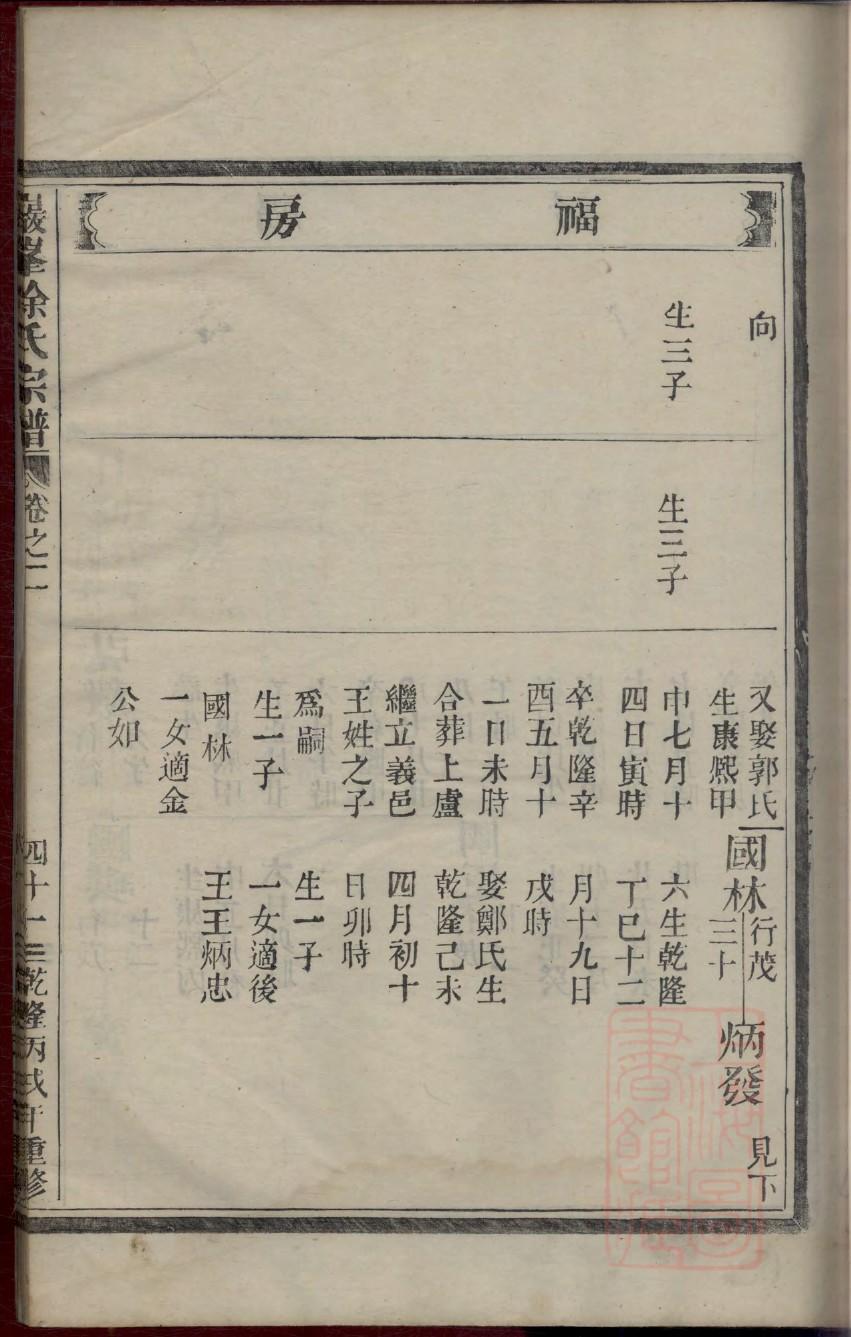 福房
向
生三子
生三子
又娶郭氏
生康熙甲
申七月十
四日寅時
卒乾隆辛
酉五月十
一日未時
合葬上盧
繼立義邑
王姓之子
爲嗣
生一子
國林
一女適金
公如
國林
行茂
三十
六生乾隆
丁巳十二
月十九日
戌時
娶鄭氏生
乾隆己未
四月初十
日卯時
生一子
一女適後
王王炳忠
炳發
見下
巖峯徐氏宗譜
卷之二
四十一
乾隆丙戌年重修